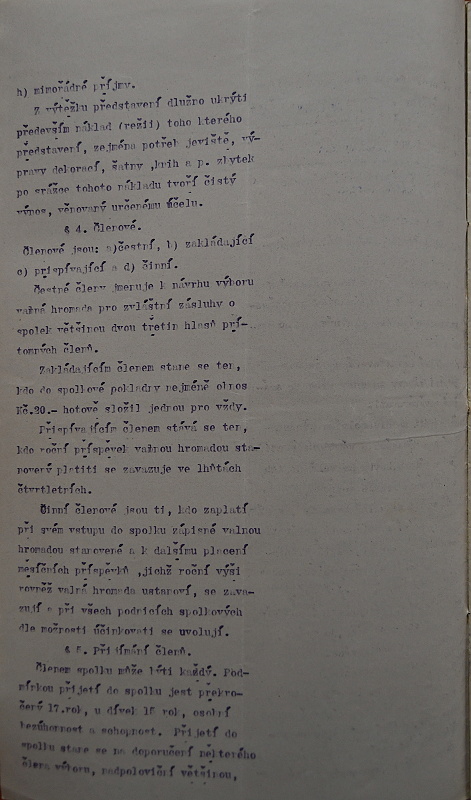 h) mimořádné příjmy.
Z výtěžku představení dlužno ukrýti
především náklad (režii) toho kterého
představení, zejména potřeb jeviště, vý-
pravy dekorací, šatny ,knih a p. zbytek
po srážce tohoto nákladu tvoří čistý
výnos, věnovaný určenému účelu.
§ 4. Členové.
Členové jsou: a)čestní, b) zakládající
c) přispívající a d) činní.
Čestné členy jmenuje k návrhu výboru
valná hromada pro zvláštní zásluhy o
spolek většinou dvou třetin hlasů pří-
tomných členů.
Zakládajícím členem stane se ten,
kdo do spolkové pokladny nejméně obnos
Kč.20.- hotově složil jednou pro vždy.
Přispívajícím členem stává se ten,
kdo roční příspěvek valnou hromadou sta-
novený platiti se zavazuje ve lhůtách
čtvrtletních.
Činní členové jsou ti, kdo zaplatí
při svém vstupu do spolku zápisné valnou
hromadou stanovené a k dalšímu placení
měsíčních příspěvků ,jichž roční výši
rovněž valná hromada ustanoví, se zava-
zují a při všech podnicích spolkových
dle možnosti účinkovati se uvolují.
§ 5. Přijímání členů.
Členem spolku může býti každý. Pod-
mínkou přijetí do spolku jest překro-
čený 17.rok, u dívek 15 rok, osobní
bezúhonnost a schopnost. Přijetí do
spolku stane se na doporučení některého
člena výboru, nadpoloviční většinou,